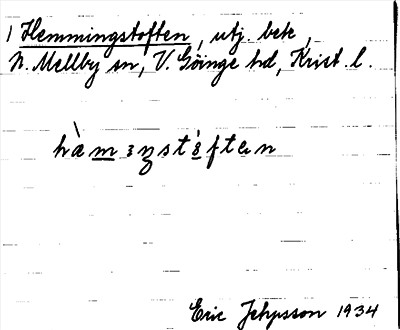 1 Hemmingstoften, utj. bek,
N. Mellby sn, V. Göinge hd, Krist. l.
Eric Jepsson 1934